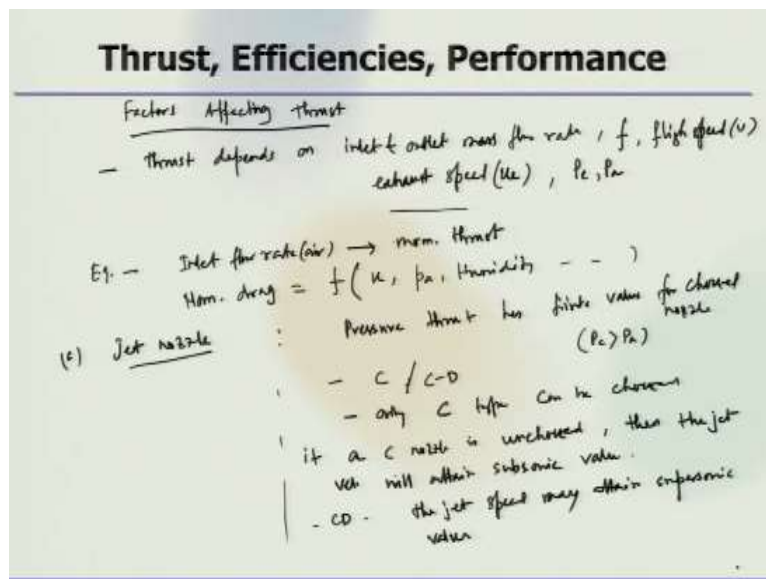 Thrust, Efficiencies, Performance
Factors Affecting Thrust
- Thrust depends on inlet & outlet mass flow rate, f, fligh speed (u)
exhaust speed (ue), Pe, Pa
Eg. - Inlet flow rate (air) → mom. thrust
Mom. drag = f(u, Pa, Humidity - - )
Jet nozzle : Pressure thrust has finite value for choked nozzle
(Pe > Pa)
- C / C-D
- only C type can be choked
if a C nozzle is unchoked, then the jet
vel. will attain subsonic value.
- CD - the jet speed may attain supersonic
value